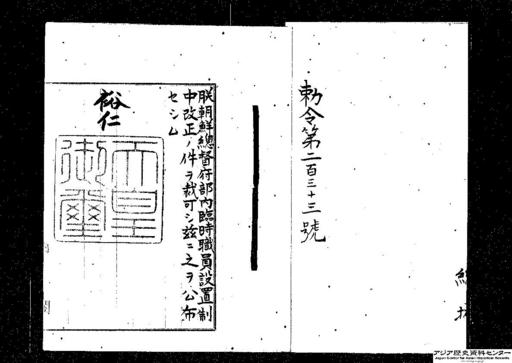 勅令第二百三十三號
朕朝鮮總督府部內臨時職員設置制
中改正ノ件ヲ裁可シ茲ニ之ヲ公布
セシム
裕仁
天皇
御璽
アジア歴史資料センター
Japan Center for Asian Historical Records